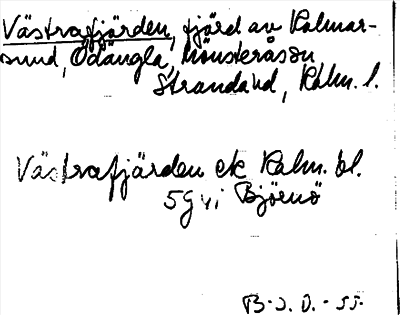 Västrafjärden, fjärd av Kalmar-
sund, Ödängla, Mönsterås sn
Stranda hd, Kalm. l.
Västrafjärden ek Kalm. bl.
5g vi Björnö
B. J. O. - 55.